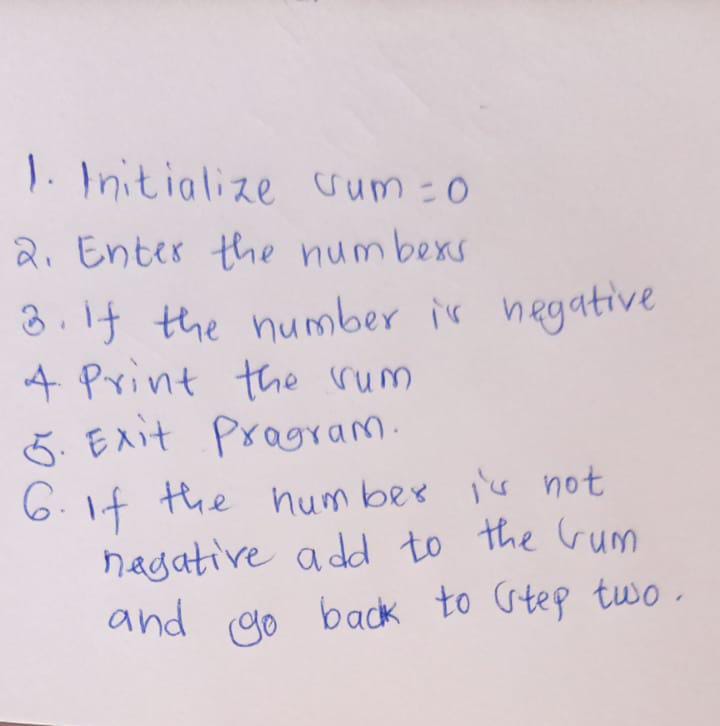 1. Initialize sum=0
2. Enter the numbers
3. If the number is negative
4. Print the sum
5. Exit Program.
6. If the number is not
negative add to the sum
and go back to step two.